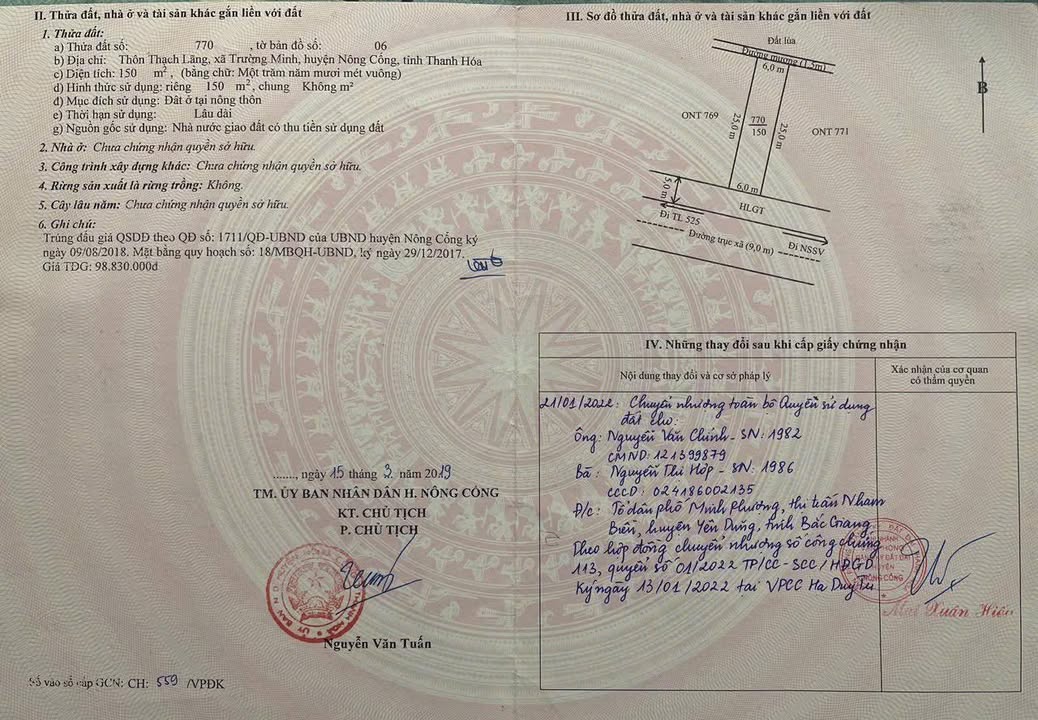 II. Thửa đất, nhà ở và tài sản khác gắn liền với đất
1. Thửa đất:
a) Thửa đất số: 770 , tờ bản đồ số: 06
b) Địa chỉ: Thôn Thạch Lãng, xã Trường Minh, huyện Nông Cống, tỉnh Thanh Hóa
c) Diện tích: 150 m², (bằng chữ: Một trăm năm mươi mét vuông)
d) Hình thức sử dụng: riêng 150 m², chung Không m²
đ) Mục đích sử dụng: Đất ở tại nông thôn
e) Thời hạn sử dụng: Lâu dài
g) Nguồn gốc sử dụng: Nhà nước giao đất có thu tiền sử dụng đất
2. Nhà ở: Chưa chứng nhận quyền sở hữu.
3. Công trình xây dựng khác: Chưa chứng nhận quyền sở hữu.
4. Rừng sản xuất là rừng trồng: Không.
5. Cây lâu năm: Chưa chứng nhận quyền sở hữu.
6. Ghi chú:
Trúng đấu giá QSDĐ theo QĐ số: 1711/QĐ-UBND của UBND huyện Nông Cống ký
ngày 09/08/2018. Mặt bằng quy hoạch số: 18/MBQH-UBND, ký ngày 29/12/2017.
Giá TĐG: 98.830.000đ
........, ngày 15 tháng 3 năm 2019
TM. ỦY BAN NHÂN DÂN H. NÔNG CỐNG
KT. CHỦ TỊCH
P. CHỦ TỊCH
Nguyễn Văn Tuấn
Số vào sổ cấp GCN: CH: 559 /VPĐK
III. Sơ đồ thửa đất, nhà ở và tài sản khác gắn liền với đất
Đất lúa
Đường mương (1,5m)
6,0 m
B
ONT 769
25,0m
770
150
25,0m
ONT 771
6,0 m
5,0 m
HLGT
Đi TL 525
Đường trục xã (9,0 m)
Đi NSSV
IV. Những thay đổi sau khi cấp giấy chứng nhận
Nội dung thay đổi và cơ sở pháp lý
Xác nhận của cơ quan
có thẩm quyền
21/01/2022: Chuyển nhượng toàn bộ Quyền sử dụng
đất cho:
Ông: Nguyễn Văn Chính - SN: 1982
CMND: 121399879
Bà: Nguyễn Thị Hóp - SN: 1986
CCCD: 024186002135
Đ/c: Tổ dân phố Minh Phượng, thị trấn Nham
Biền, huyện Yên Dũng, tỉnh Bắc Giang
Theo hợp đồng chuyển nhượng số công chứng
113, quyển số 01/2022 TP/CC-SCC/HĐGD
Ký ngày 13/01/2022 tại VPCC Hà Duy
Mai Xuân Hiên